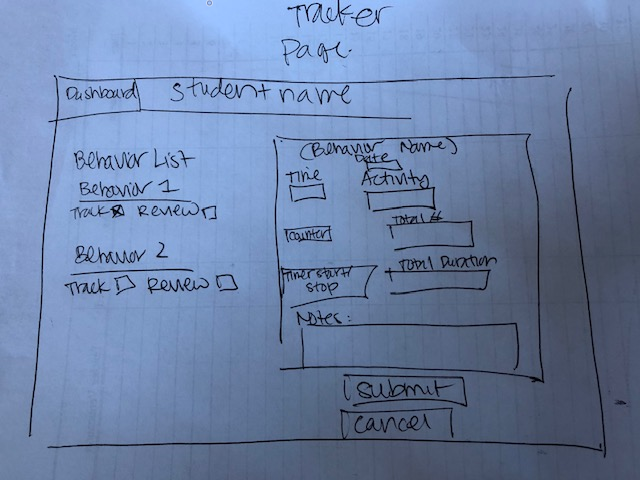 Tracker
Page.
Dashboard
Student name
Behavior List
Behavior 1
Track Review
Behavior 2
Track Review
(Behavior Name)
Date
Time
Activity
counter
Total #
Timer start/
stop
Total Duration
Notes:
submit
cancel